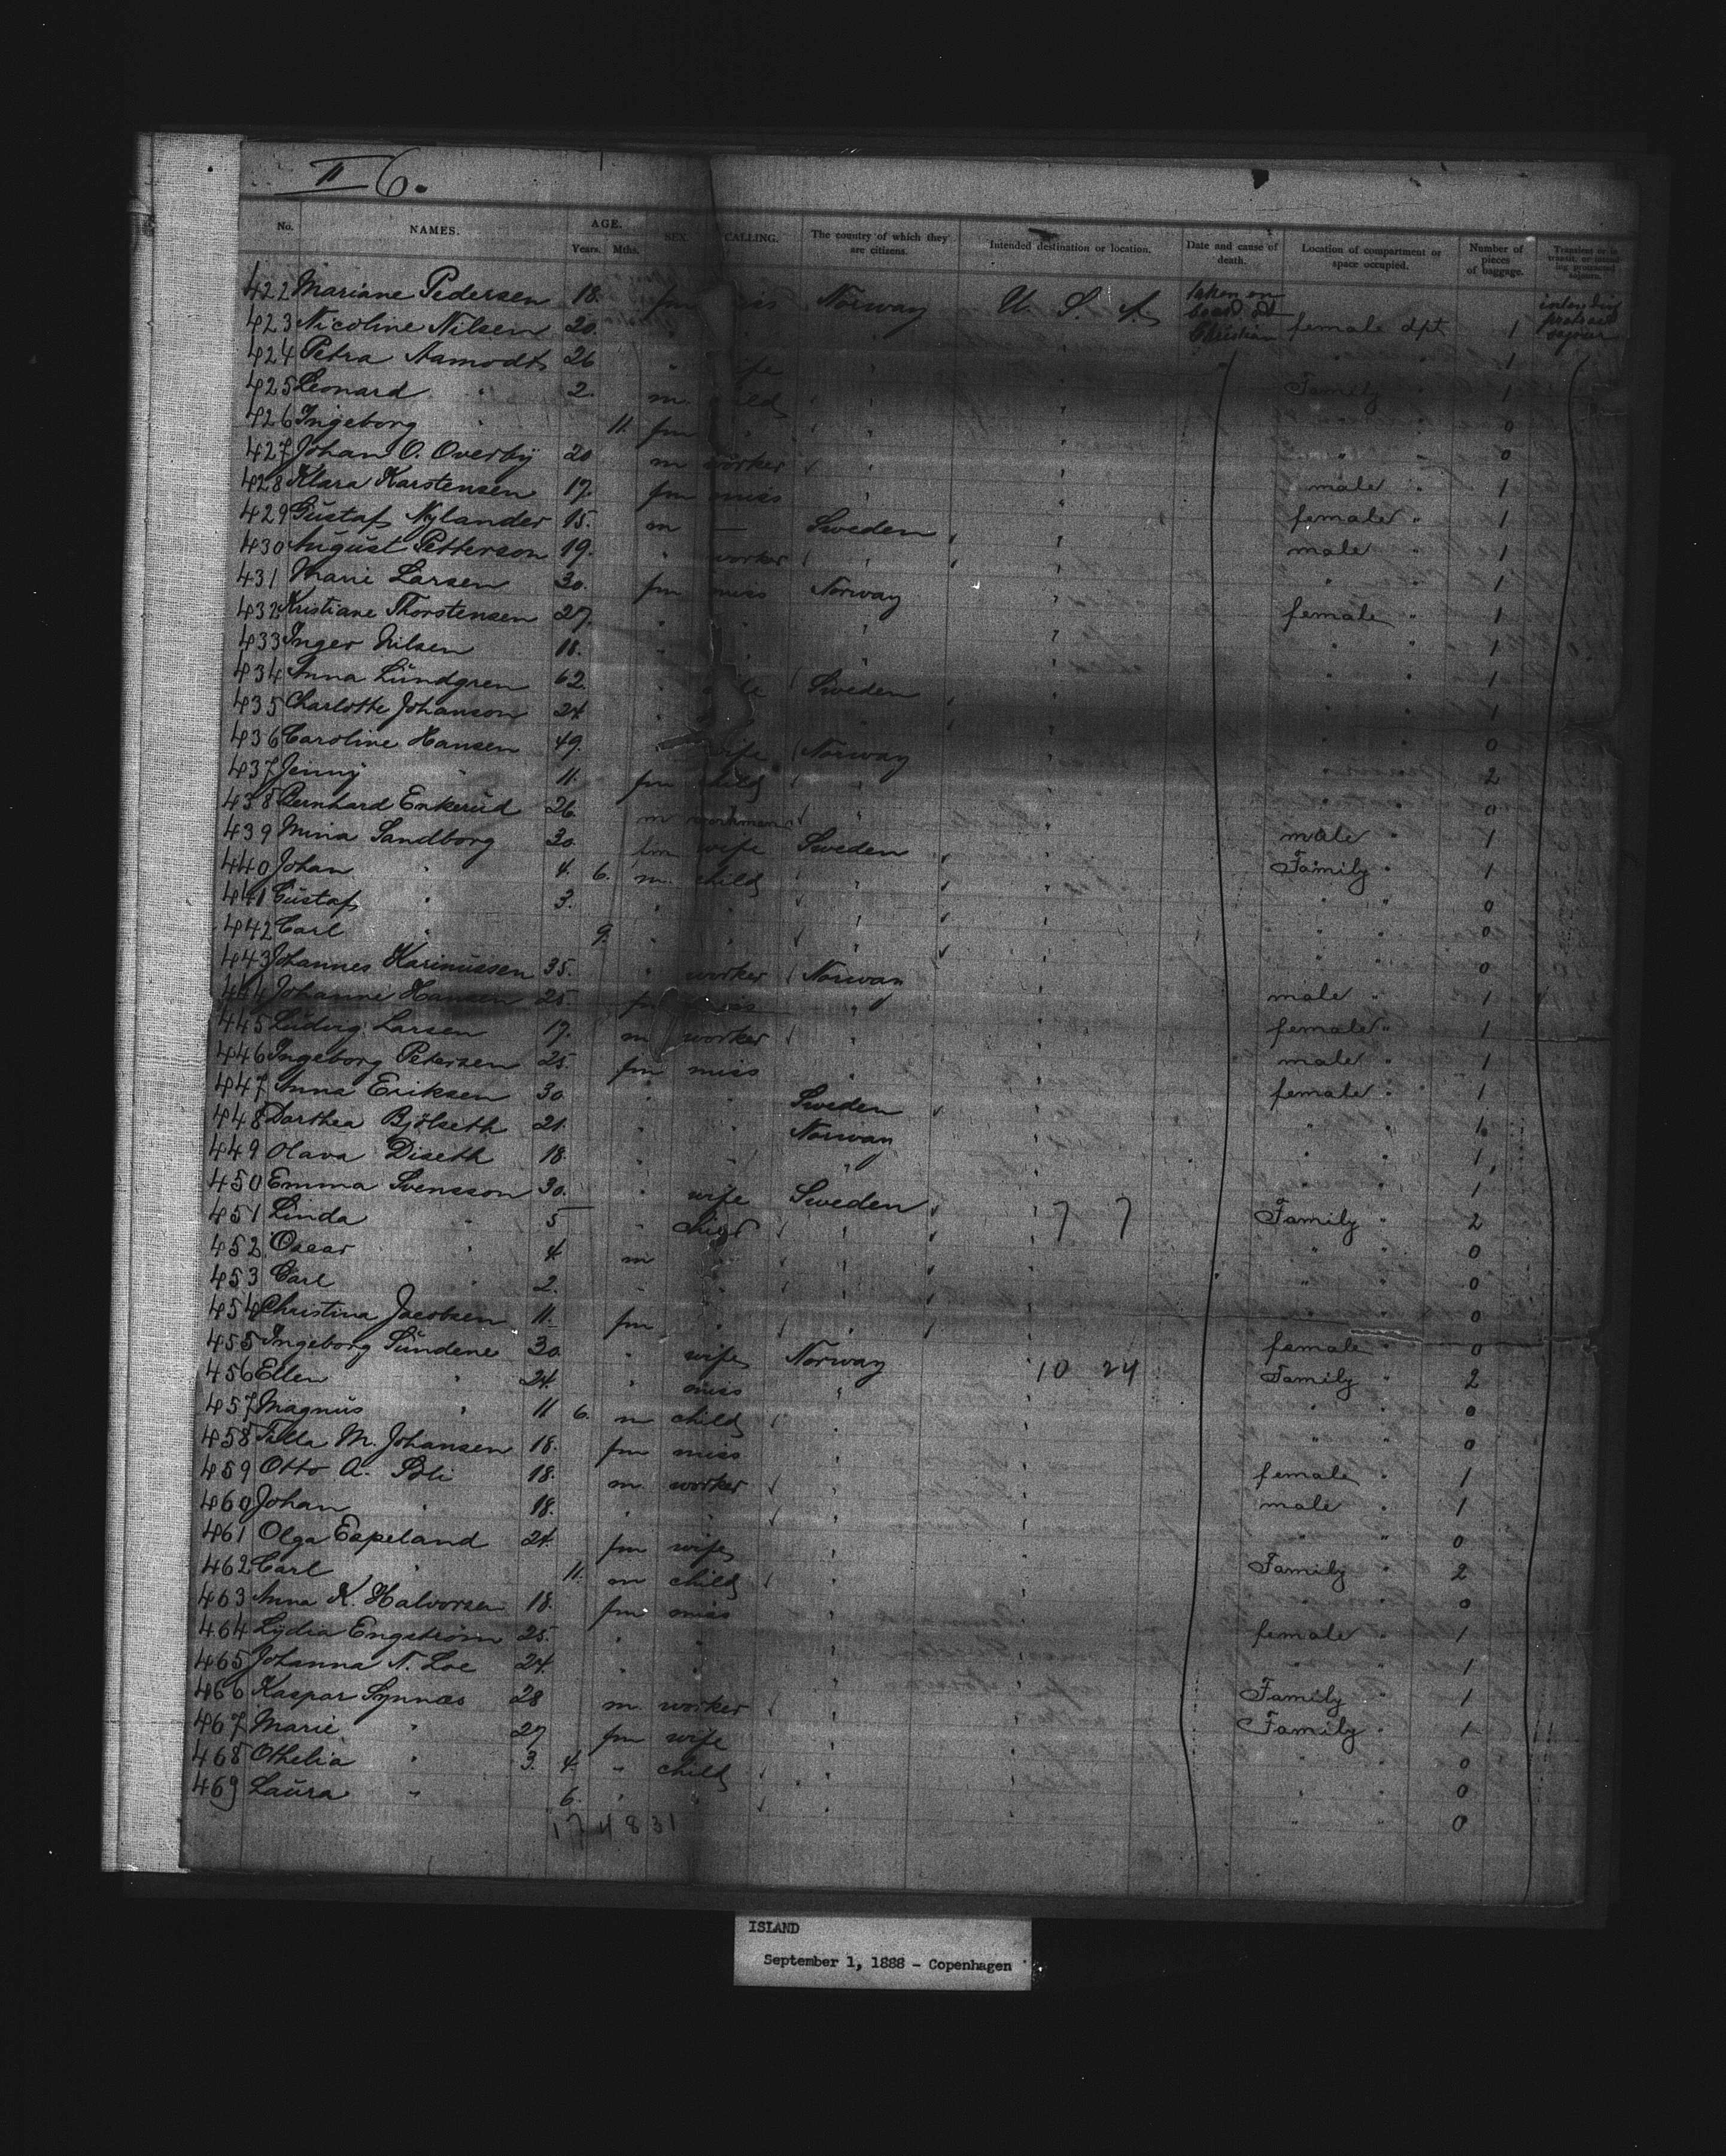 II 6.
No. NAMES. AGE. Years. Mths. SEX. CALLING. The country of which they are citizens. Intended destination or location. Date and cause of death. Location of compartment or space occupied. Number of pieces of baggage.
422 Mariane Pedersen 18. fm miss Norway U. S. A. taken on board at Christian female dpt 1
423 Nicoline Nilsen 20. " 1
424 Petra Aamodt 26 " wife " Family " 1
425 Leonard " 2. m. child " 0
426 Ingeborg " 11. fm " " 0
427 Johan O. Overby 20 m worker " male " 1
428 Klara Karstensen 17. fm miss " female " 1
429 Gustaf Nylander 15. m — Sweden male " 1
430 August Petterson 19. " worker " " 1
431 Marie Larsen 30. fm miss Norway female " 1
432 Kristiane Thorstensen 27. " " " " 1
433 Inger Nilsen 18. " " " " 1
434 Anna Lundgren 62. " Sweden " 1
435 Charlotte Johanson 24 " " 0
436 Caroline Hansen 49. wife Norway 2
437 Jenny " 11. fm child " 0
438 Bernhard Enkerud 26. m workman " male " 1
439 Mina Sandborg 30. fm wife Sweden Family " 1
440 Johan " 4. 6. m. child " " 0
441 Gustaf " 3. " " " " 0
442 Carl " 9. " " " " 0
443 Johannes Harinussen 35. " worker Norway male " 1
444 Johanne Hansen 25 fm miss " female " 1
445 Ludvig Larsen 17. m worker " male " 1
446 Ingeborg Petersen 25. fm miss " female " 1
447 Anna Eriksen 30 " " Sweden " 1
448 Dorthea Bjölseth 21. " " Norway " 1
449 Olava Diseth 18. " " " " 1
450 Emma Svensson 30. " wife Sweden 7 7 Family " 2
451 Linda " 5 " child " " 0
452 Oscar " 4 m " " " 0
453 Carl " 2. " " " " 0
454 Christina Jacobsen 11. fm " " female " 0
455 Ingeborg Sundene 30 " wife Norway 10 24 Family " 2
456 Ellen " 24. " miss " " 0
457 Magnus " 11 6. m child " " 0
458 M. Johansen 18. fm miss " female " 1
459 Otto A. 18. m. worker " male " 1
460 Johan " 18. " " " " 0
461 Olga Espeland 24. fm wife " Family " 2
462 Carl " 11. m child " " 0
463 Anna K. Halvorsen 18. fm miss " female " 1
464 Lydia Engstrom 25. " " " " 1
465 Johanna N. Loe 24. " " " Family " 1
466 Kaspar Synnes 28 m. worker " Family " 1
467 Marie " 27 fm wife " " 0
468 Othelia " 3. 4. " child " " 0
469 Laura " 6. " " " " 0
174831
ISLAND
September 1, 1888 - Copenhagen